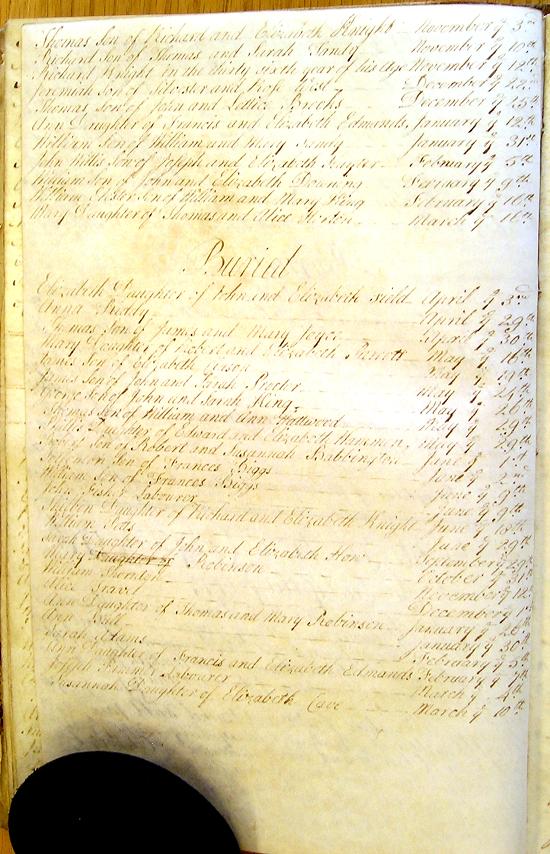 Thomas Son of Richard and Elizabeth Knight November ye 3rd
Richard Son of Thomas and Sarah November ye 10th
Richard Knight in the thirty sixth year of his Age November ye 12th
Jeremiah Son of Silvester and West December ye
Thomas Son of John and Lettice Brooks December ye 25th
Ann Daughter of Francis and Elizabeth Edmands January ye 12th
William Son of William and Mary January ye 31st
John Son of Joseph and Elizabeth February ye 5th
William Son of John and Elizabeth Downing ye 9th
William Son of William and Mary King February ye 16th
Mary Daughter of Thomas and Alice March ye 16th
Buried
Elizabeth Daughter of John and Elizabeth April ye 3rd
Anna April ye 29th
Thomas Son of James and Mary Joyce April ye 30th
Mary Daughter of Robert and Elizabeth May ye 16th
James Son of Elizabeth May ye 19th
James Son of John and Sarah Proctor May ye 24th
George Son of John and Sarah King May ye 26th
Thomas Son of William and Ann May ye 29th
Daughter of Edward and Elizabeth May ye 29th
Son of Robert and Susannah Babbington June ye 1st
Son of Frances Biggs June ye 2nd
William Son of Frances Biggs June ye 9th
John Labourer June ye 9th
Daughter of Richard and Elizabeth Knight June ye 18th
William June ye 29th
Sarah Daughter of John and Elizabeth How September ye 29th
Daughter of Robinson October ye 31st
William Thornton November ye 12
Alice December ye 1st
Ann Daughter of Thomas and Mary Robinson January ye
Ann Bull January ye 30th
Sarah Adams February ye 5th
Ann Daughter of Francis and Elizabeth Edmands February ye 7th
Joseph Labourer March ye 4th
Susannah Daughter of Elizabeth Cave March ye 10th